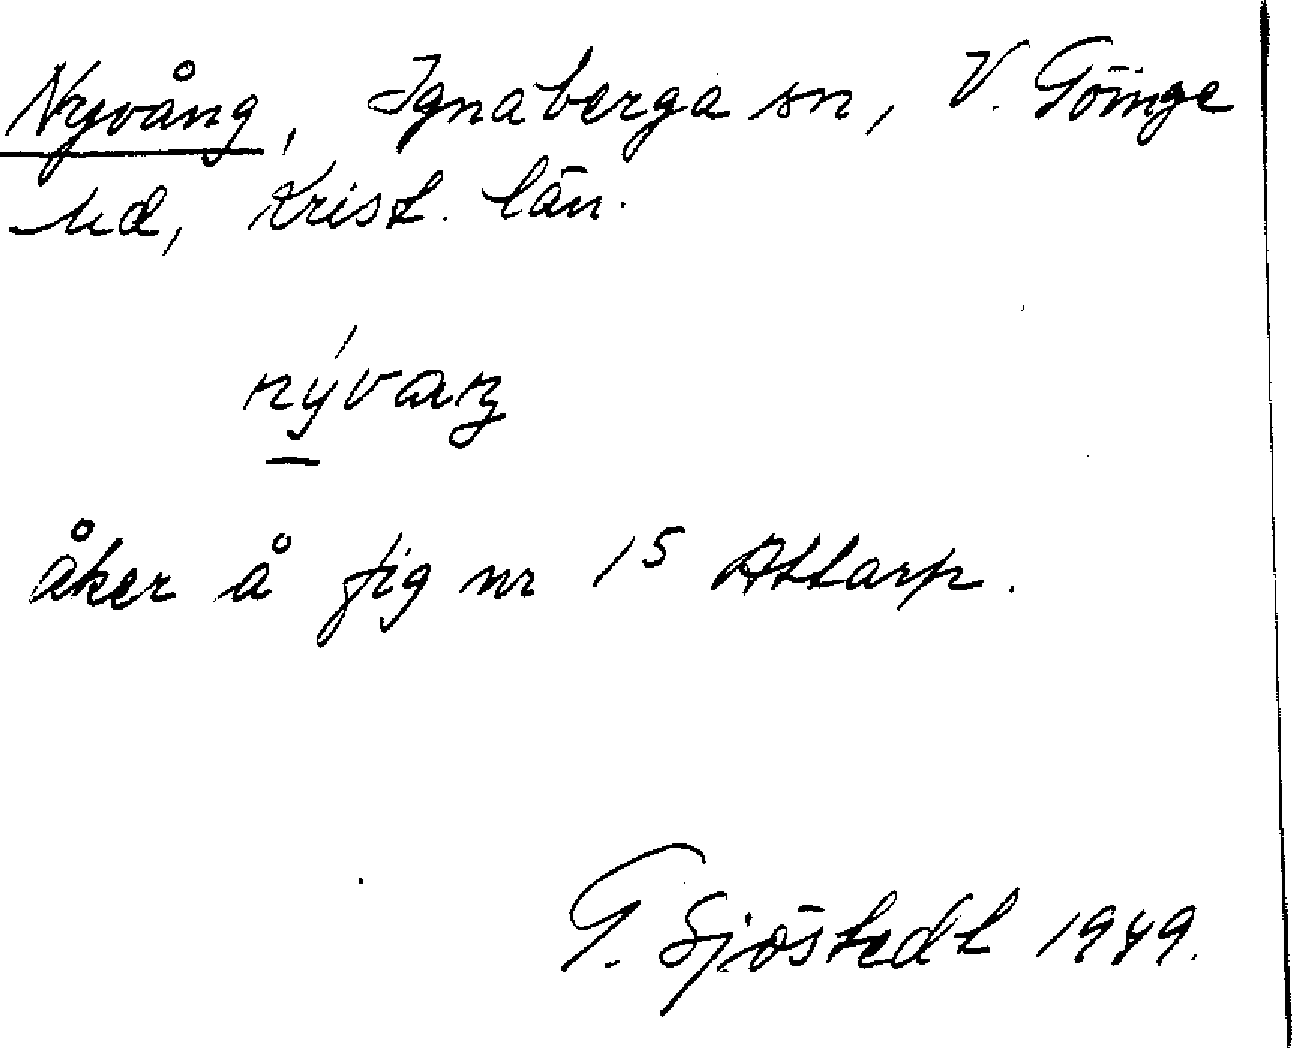 Nyvång, Ignaberga sn, V. Göinge
hd, Krist. län.
nývaŋ
åker å fig nr 15 Attarp.
G. Sjöstedt 1949.